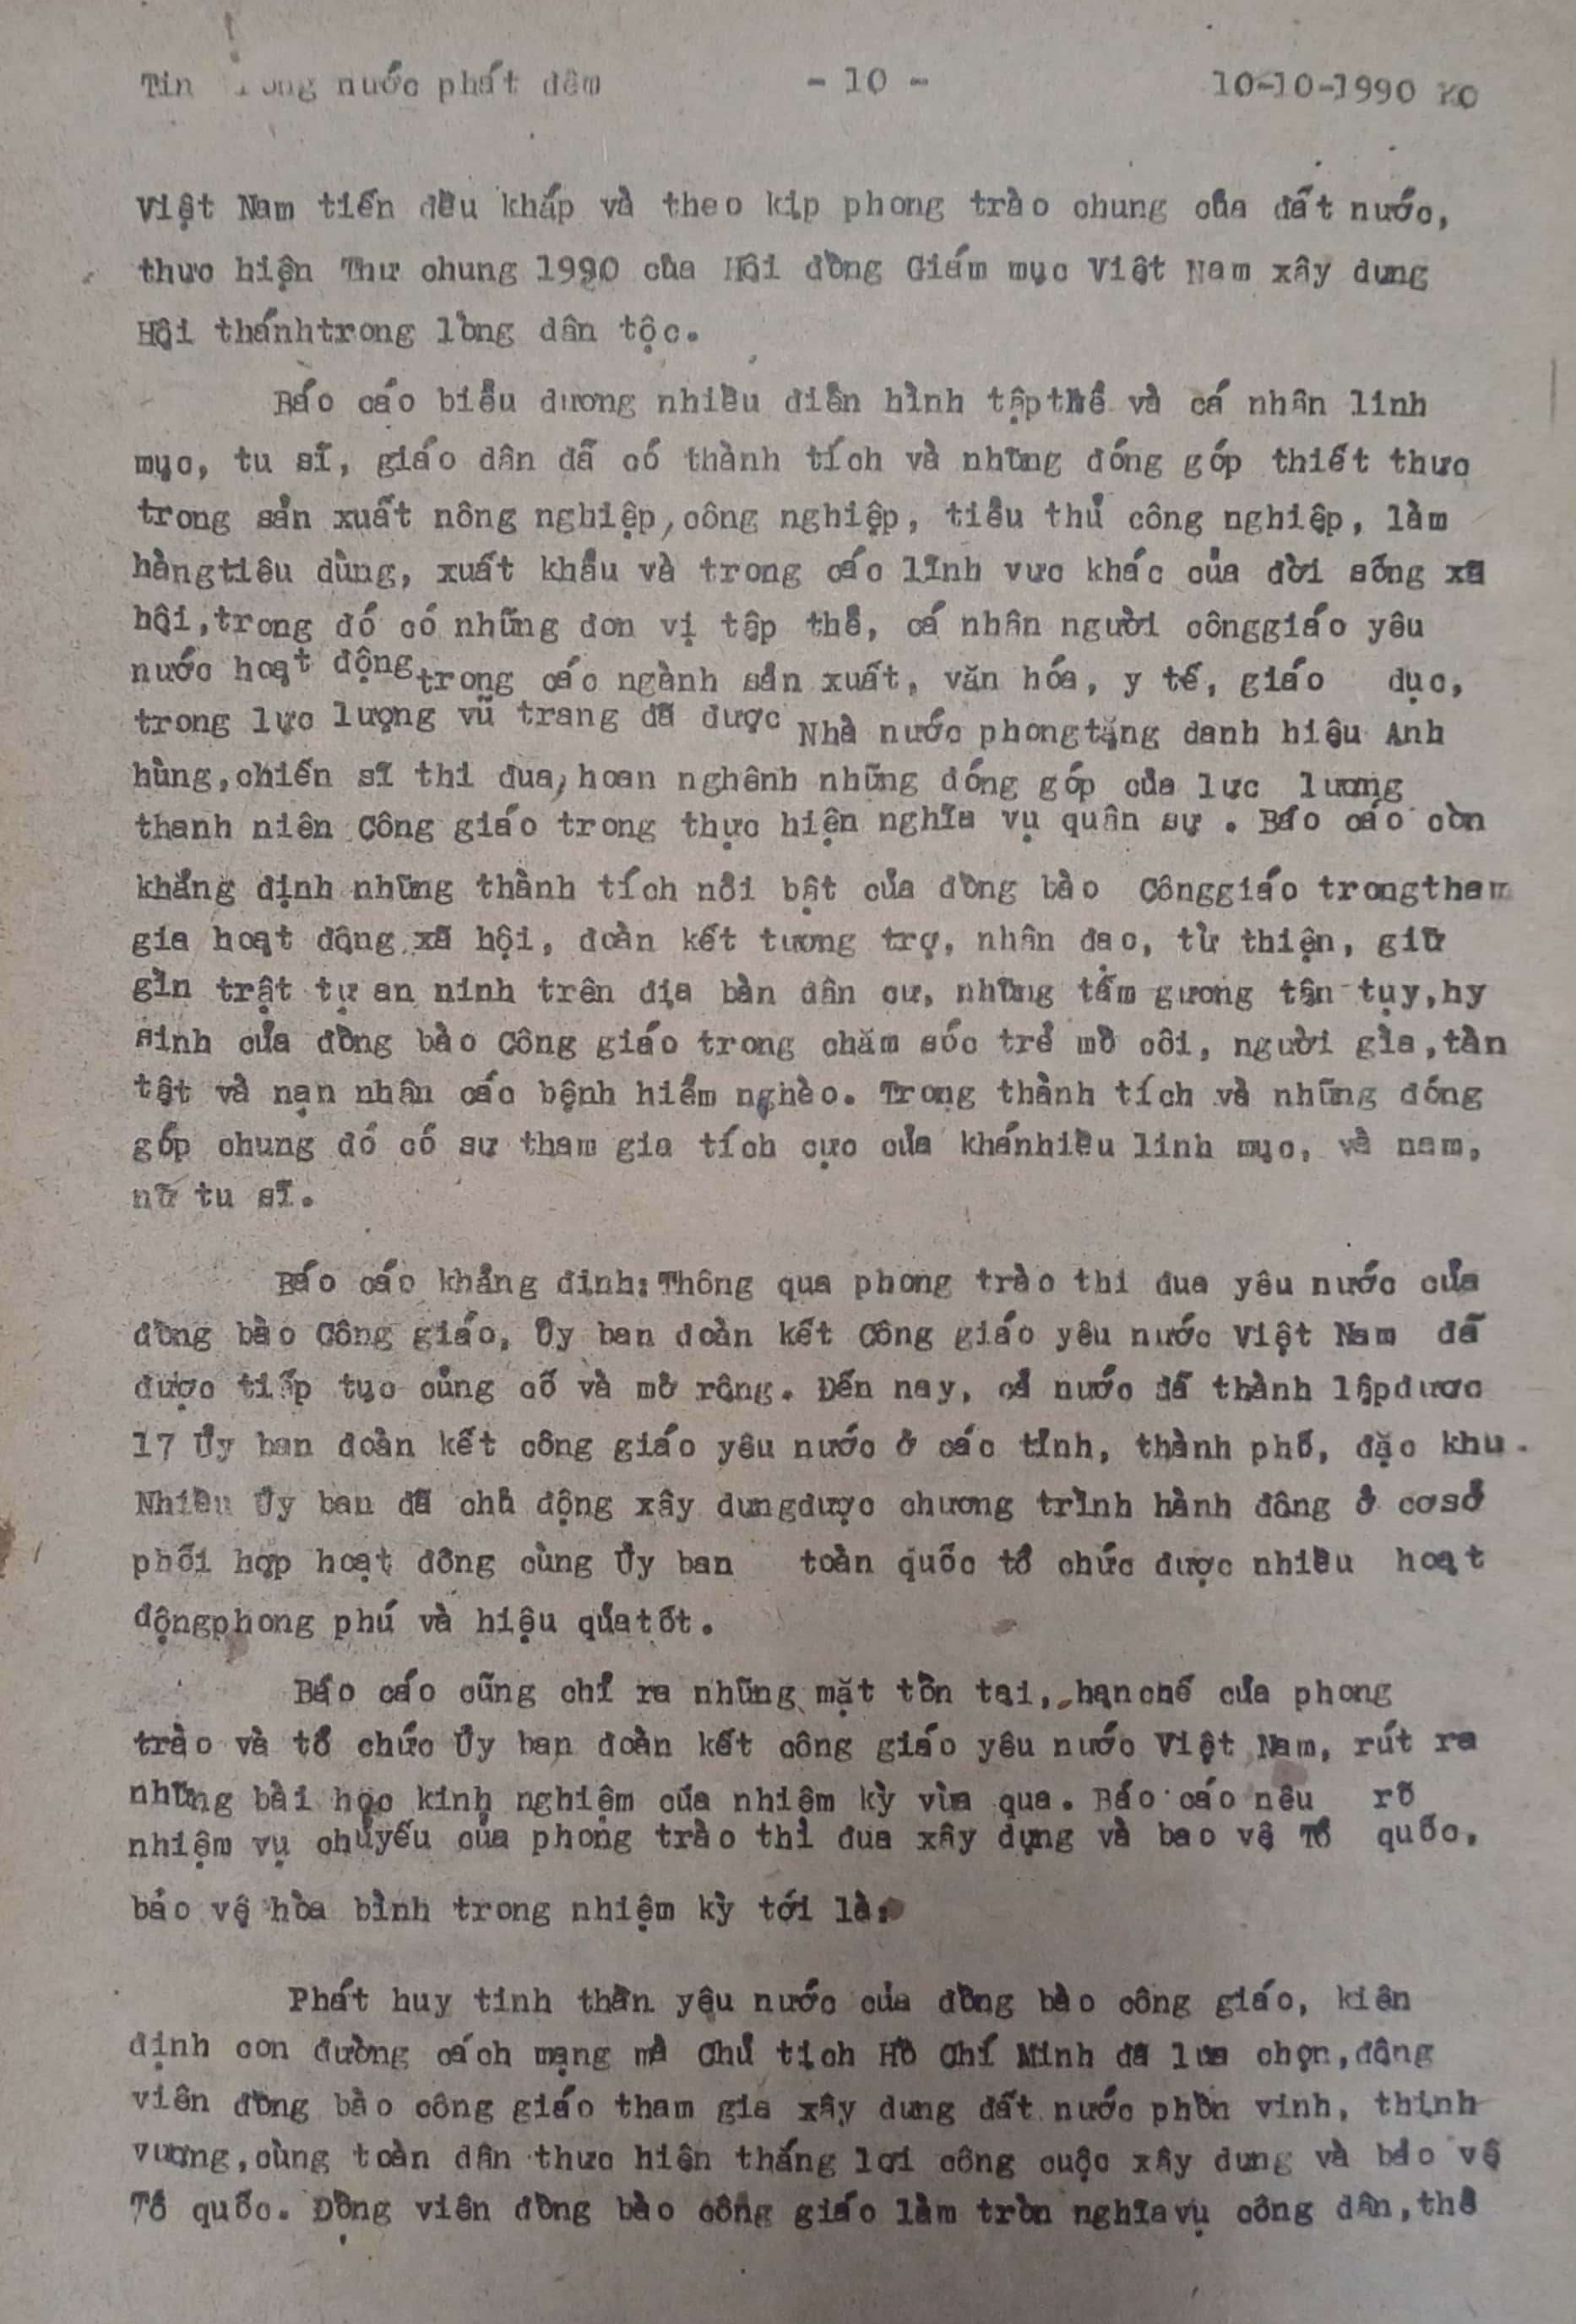 Tin trong nước phát đêm - 10 - 10-10-1990 KO
Việt Nam tiến đều khắp và theo kịp phong trào chung của đất nước,
thực hiện Thư chung 1990 của Hội đồng Giám mục Việt Nam xây dung
Hội thánhtrong lòng dân tộc.
Báo cáo biểu dương nhiều điển hình tậpthể và cá nhân linh
mục, tu sĩ, giáo dân đã có thành tích và những đóng góp thiết thực
trong sản xuất nông nghiệp,công nghiệp, tiểu thủ công nghiệp, làm
hàngtiêu dùng, xuất khẩu và trong các lĩnh vưc khác của đời sống xã
hội,trong đó có những đơn vị tập thể, cá nhân người cônggiáo yêu
nước hoạt động trong các ngành sản xuất, văn hóa, y tế, giáo dục,
trong lực lượng vũ trang đã được Nhà nước phongtặng danh hiệu Anh
hùng,chiến sĩ thi đua,hoan nghênh những đóng góp của lực lượng
thanh niên Công giáo trong thực hiện nghĩa vụ quân sự . Báo cáo còn
khẳng định những thành tích nổi bật của đồng bào Cônggiáo trongtham
gia hoạt động xã hội, đoàn kết tương trợ, nhân đạo, từ thiện, giữ
gìn trật tự an ninh trên địa bàn dân cư, những tấm gương tận tụy,hy
sinh của đồng bào Công giáo trong chăm sóc trẻ mồ côi, người gìa,tàn
tật và nạn nhân các bệnh hiểm nghèo. Trong thành tích và những đóng
góp chung đó có sự tham gia tích cực của khánhiều linh mục, và nam,
nữ tu sĩ.
Báo cáo khẳng định:Thông qua phong trào thi đua yêu nước của
đồng bào Công giáo, Ủy ban đoàn kết Công giáo yêu nước Việt Nam đã
được tiếp tục củng cố và mở rộng. Đến nay, cả nước đã thành lậpđược
17 Ủy ban đoàn kết công giáo yêu nước ở các tỉnh, thành phố, đặc khu.
Nhiều Ủy ban đã chủ động xây dungđược chương trình hành đông ở cơsở
phối hợp hoạt đông cùng Ủy ban toàn quốc tổ chức được nhiều hoạt
độngphong phú và hiệu qủatốt.
Báo cáo cũng chỉ ra những mặt tồn tại, hạnchế của phong
trào và tổ chức Ủy ban đoàn kết công giáo yêu nước Việt Nam, rút ra
những bài học kinh nghiệm của nhiệm kỳ vừa qua. Báo cáo nêu rõ
nhiệm vụ chủyếu của phong trào thi đua xây dựng và bao vệ Tổ quốc,
bảo vệ hòa bình trong nhiệm kỳ tới là:
Phát huy tinh thần yêu nước của đồng bào công giáo, kiên
định con đường cách mạng mà Chủ tịch Hồ Chí Minh đã lưa chọn,động
viên đồng bào công giáo tham gia xây dung đất nước phồn vinh, thịnh
vượng,cùng toàn dân thưc hiện thắng lợi công cuộc xây dung và bảo vệ
Tổ quốc. Động viên đồng bào công giáo làm tròn nghĩavụ công dân,thể